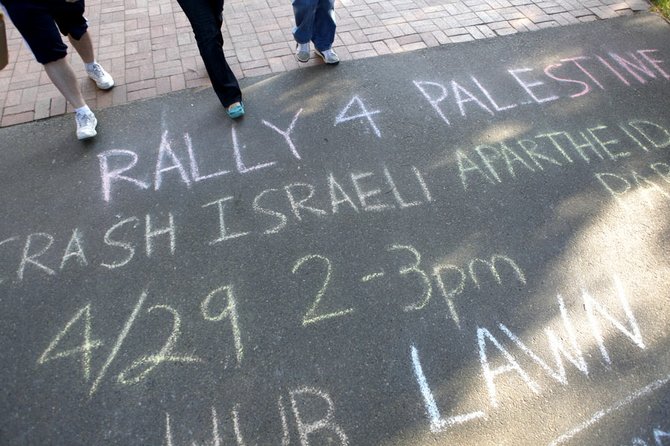 RALLY 4 PALESTINE
CRASH ISRAELI APARTHEID
4/29 2-3pm
HUB LAWN